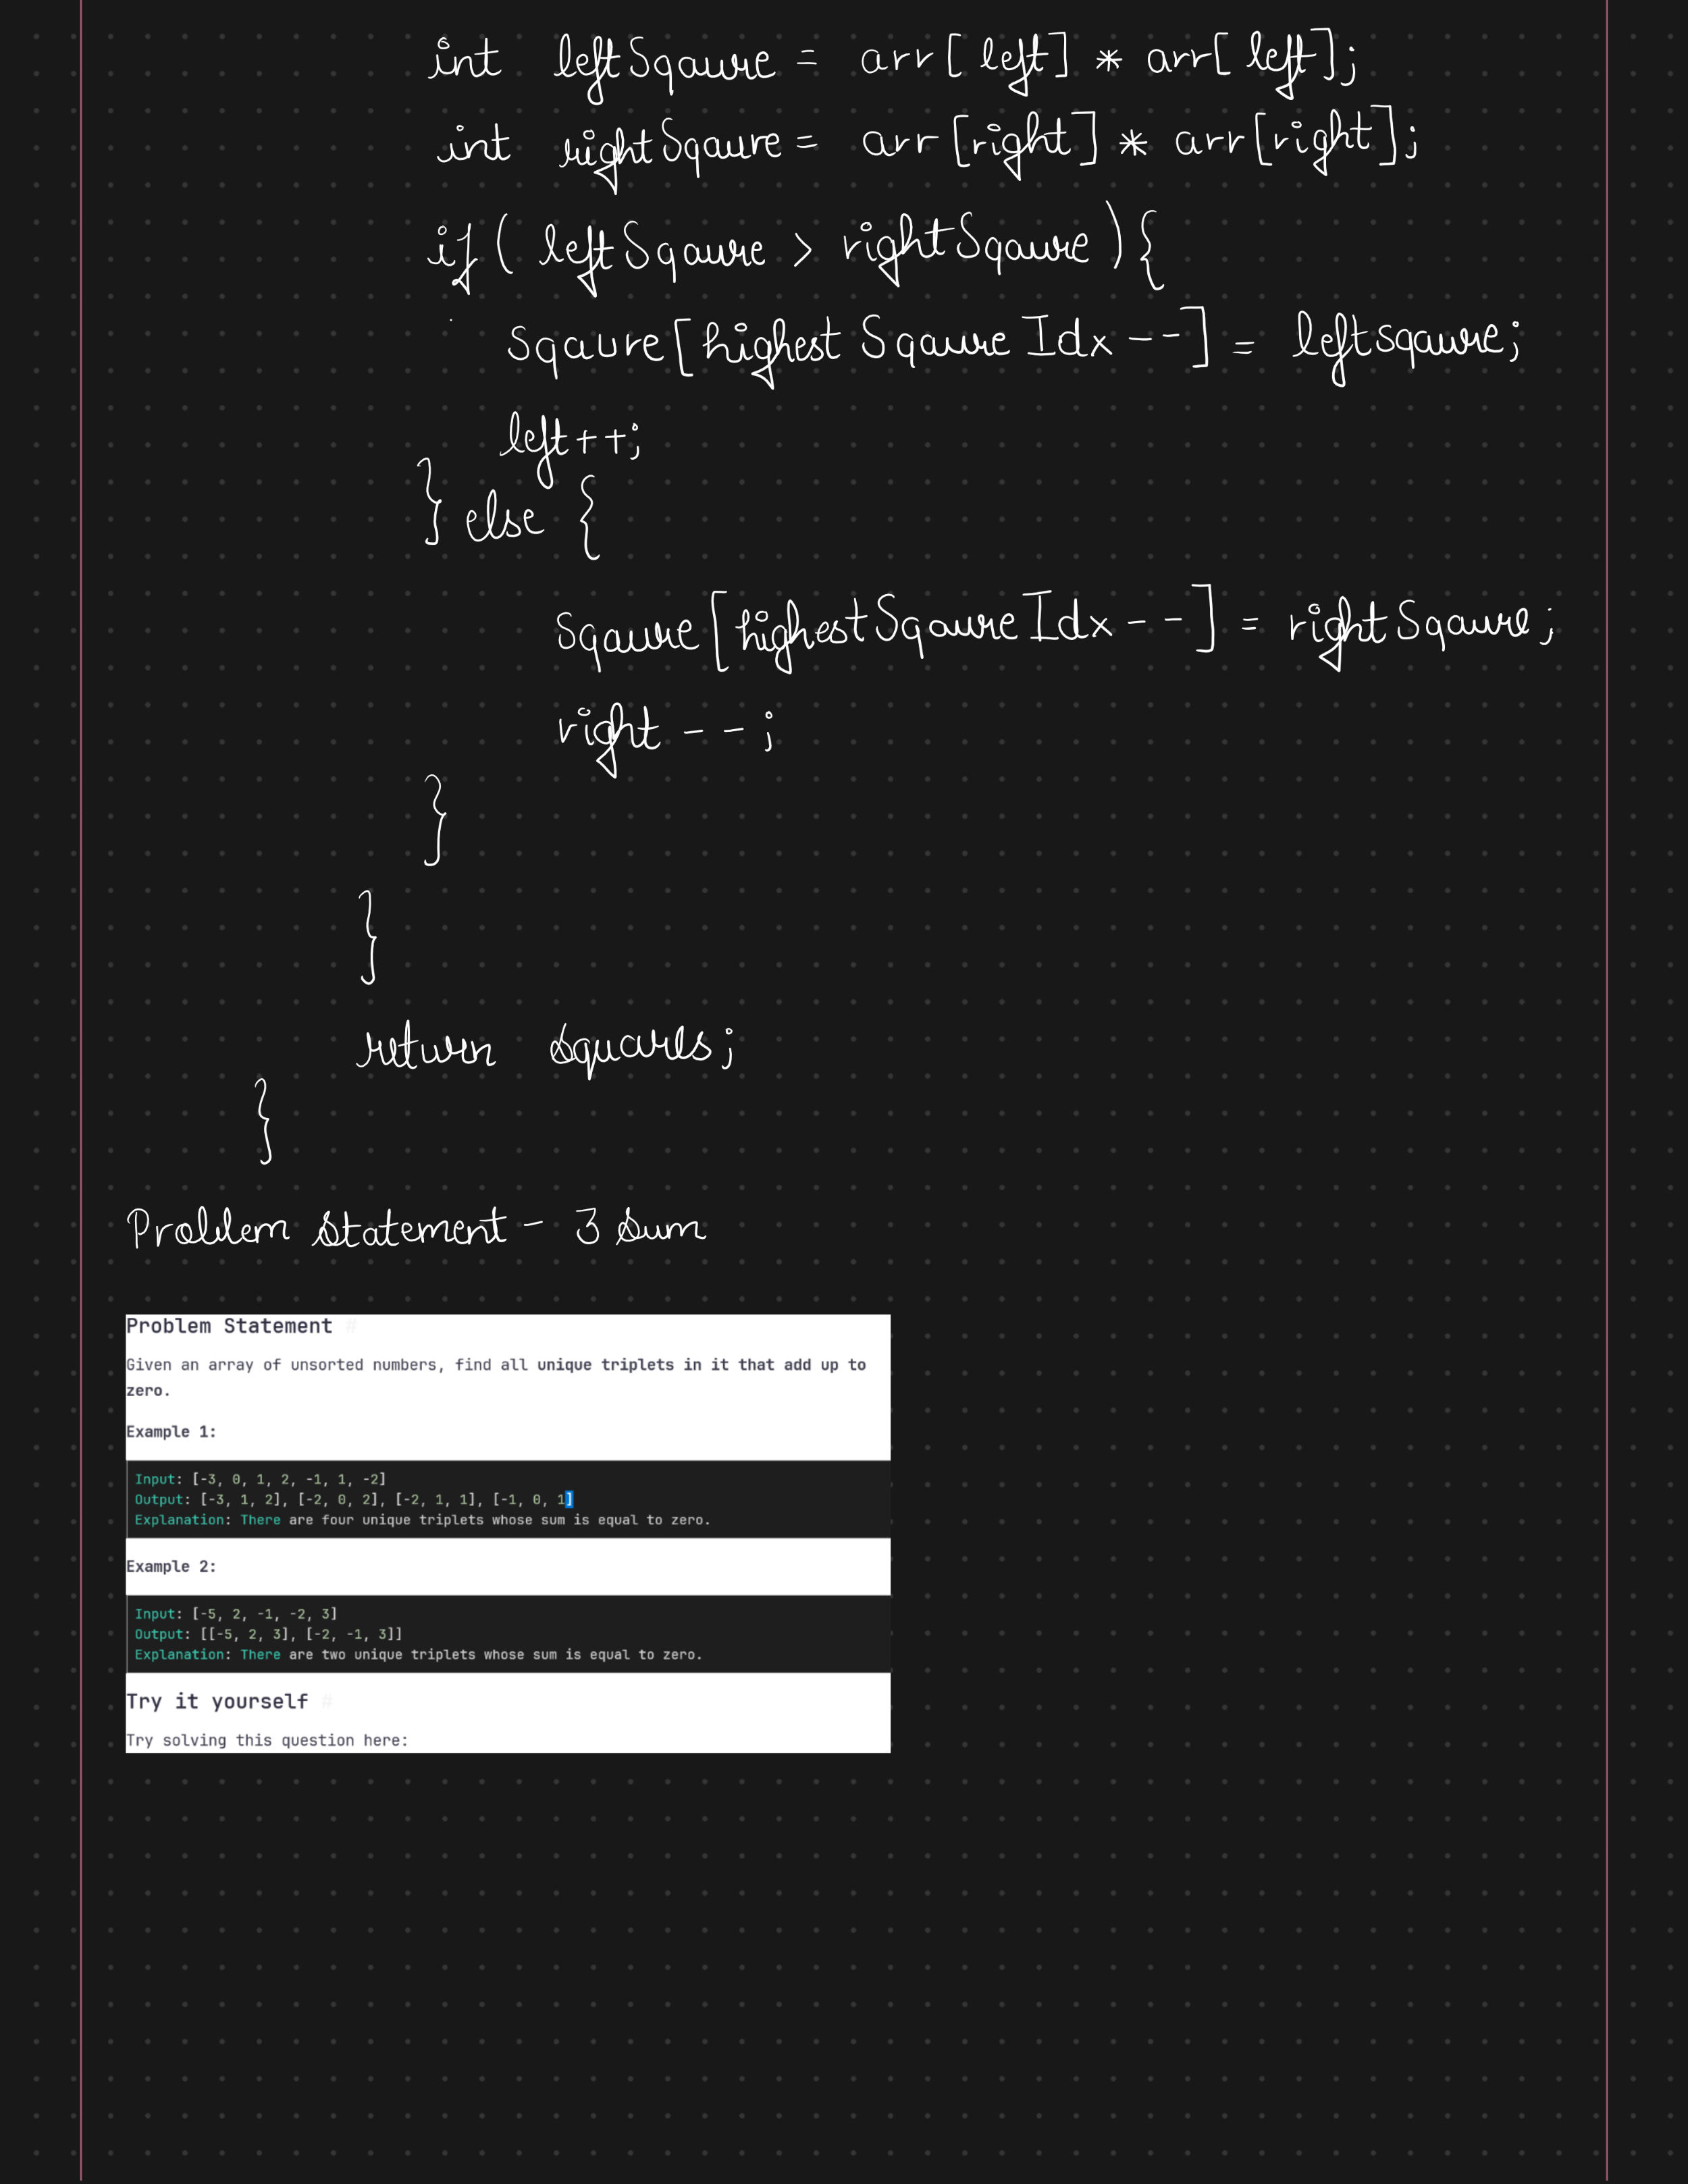 int leftSqaure = arr[left] * arr[left];
int rightSqaure = arr[right] * arr[right];
if(leftSqaure > rightSqaure){
sqaure[highestSqaureIdx--] = leftsqaure;
left++;
} else {
sqaure[highestSqaureIdx--] = rightSqaure;
right--;
}
}
return squares;
}
Problem Statement - 3 Sum
Problem Statement #
Given an array of unsorted numbers, find all unique triplets in it that add up to
zero.
Example 1:
Input: [-3, 0, 1, 2, -1, 1, -2]
Output: [-3, 1, 2], [-2, 0, 2], [-2, 1, 1], [-1, 0, 1]
Explanation: There are four unique triplets whose sum is equal to zero.
Example 2:
Input: [-5, 2, -1, -2, 3]
Output: [[-5, 2, 3], [-2, -1, 3]]
Explanation: There are two unique triplets whose sum is equal to zero.
Try it yourself #
Try solving this question here: